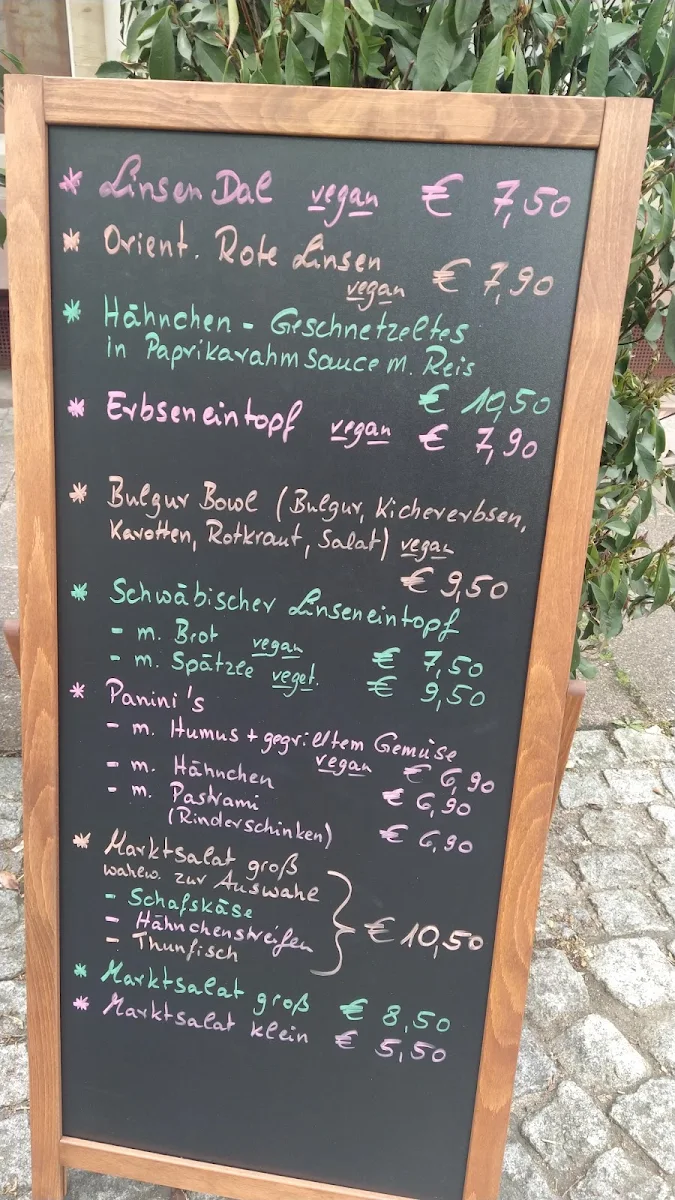 * Linsen Dal vegan € 7,50
* Orient. Rote Linsen
vegan € 7,90
* Hähnchen - Geschnetzeltes
in Paprikarahmsauce m. Reis
€ 10,50
* Erbseneintopf vegan € 7,90
* Bulgur Bowl (Bulgur, Kichererbsen,
Karotten, Rotkraut, Salat) vegan
€ 9,50
* Schwäbischer Linseneintopf
- m. Brot vegan € 7,50
- m. Spätzle veget. € 9,50
* Panini's
- m. Humus + gegrilltem Gemüse
vegan € 6,90
- m. Hähnchen € 6,90
- m. Pastrami
(Rinderschinken) € 6,90
* Marktsalat groß
wahlw. zur Auswahl
- Schafskäse
- Hähnchenstreifen € 10,50
- Thunfisch
* Marktsalat groß € 8,50
* Marktsalat klein € 5,50